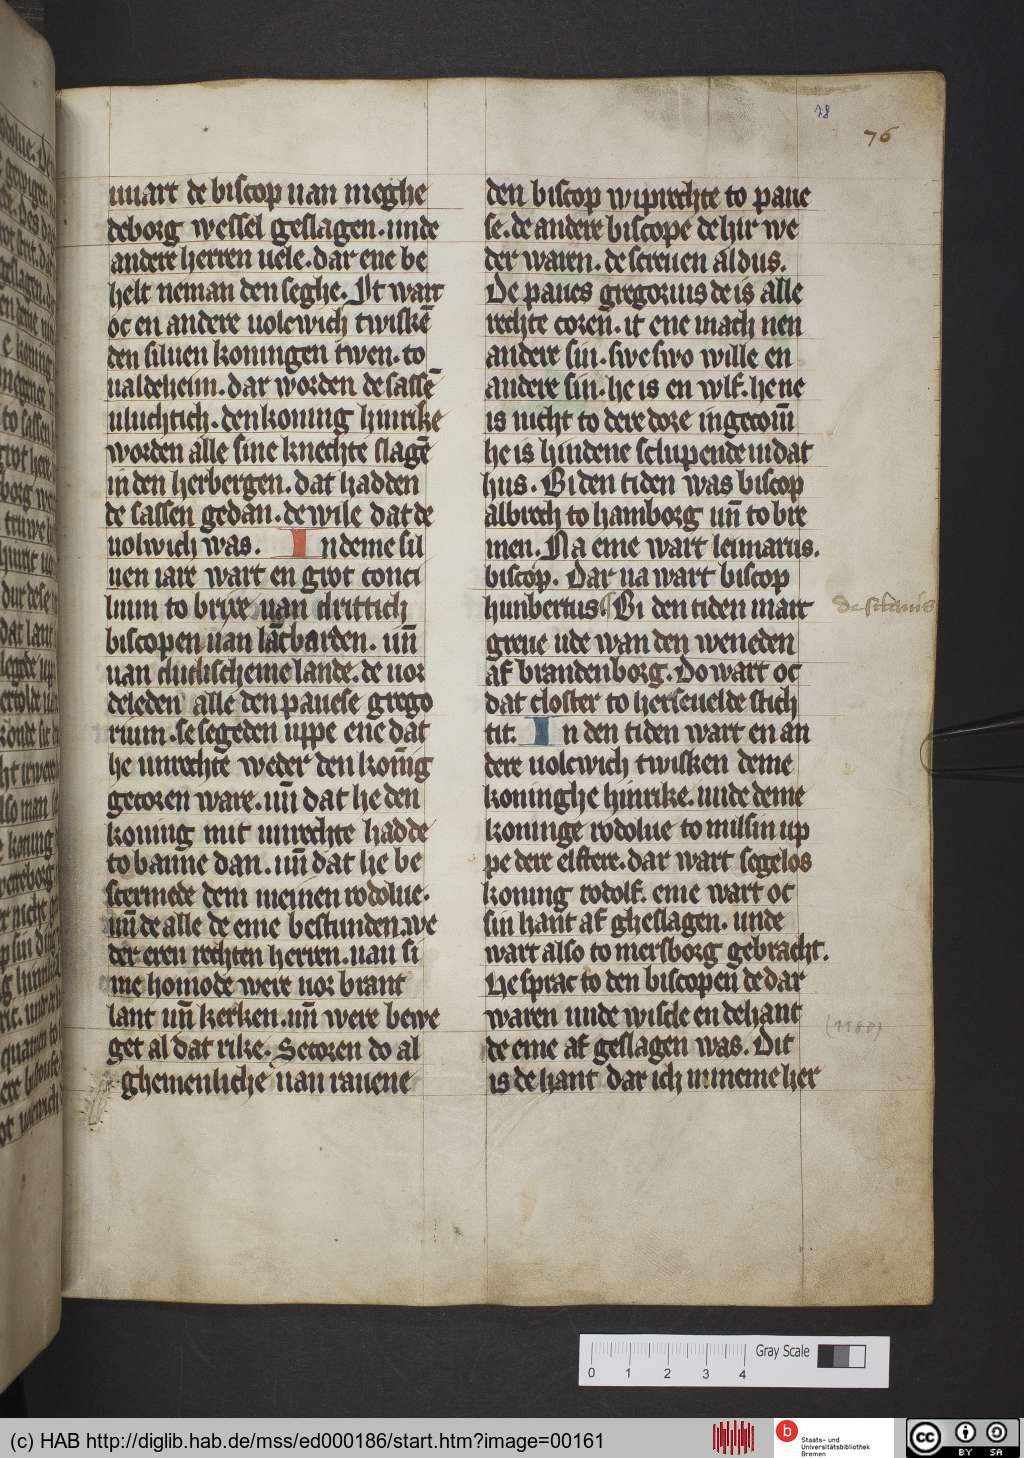 78
76
wart de biscop uan meghe
deborg wessel geslagen. unde
andere herren uele. dar ene be
helt neman den seghe. It wart
oc en andere uolcwich twiskē
den siluen koningen twen. to
ualdeheim. dar worden de sassē
uluchtich. den koning hinrike
worden alle sine knechte slagē
in den herbergen. dat hadden
de sassen gedan. de wile dat de
uolwich was. In deme sil
uen iare wart en grot conci
lium to brixe uan drittich
biscopen uan lācbarden. uñ
uan dudischeme lande. de uor
deleden alle den pauese grego
rium. se segeden uppe ene dat
he unrechte weder den konīg
gecozen ware. uñ dat he den
koning mit unrechte hadde
to banne dan. uñ dat he be
scermede dem meinen rodolue.
uñ de alle de eme bestunden. we
der eren rechten herren. uan si
me homode were uor brant
lant uñ kerken. uñ were bewe
get al dat rike. Se cozen do al
ghemenliche uan rauene
den biscop wiprechte to paue
se. de andere biscope de hir we
der waren. de screuen aldus.
De paues gregorius de is alle
rechte cozen. it ene mach nen
andere sin. swe swo wille en
andere sin. he is en wlf. he ne
is nicht to dere dore ingecom̄
he is hindene sclupende in dat
hus. Bi den tiden was biscop
albrech to hamborg uñ to bre
men. Na eme wart leimarus.
biscop. Dar na wart biscop
hunbertus. Bi den tiden marc
greue ude wan den weneden
af brandenborg. Do wart oc
dat closter to herseuelde stich
tit. In den tiden wart en an
dere uolcwich twisken deme
koninghe hinrike. unde deme
koninge rodolue to milsin up
pe dere elstere. dar wart segelos
koning rodolf. eme wart oc
sin hant af gheslagen. unde
wart also to mersborg gebracht.
He sprac to den biscopen de dar
waren unde wisede en de hant
de eme af geslagen was. Dit
is de hant dar ich mineme her
Gray Scale
0 1 2 3 4
(c) HAB http://diglib.hab.de/mss/ed000186/start.htm?image=00161
b
Staats- und
Universitätsbibliothek
Bremen
cc
BY SA